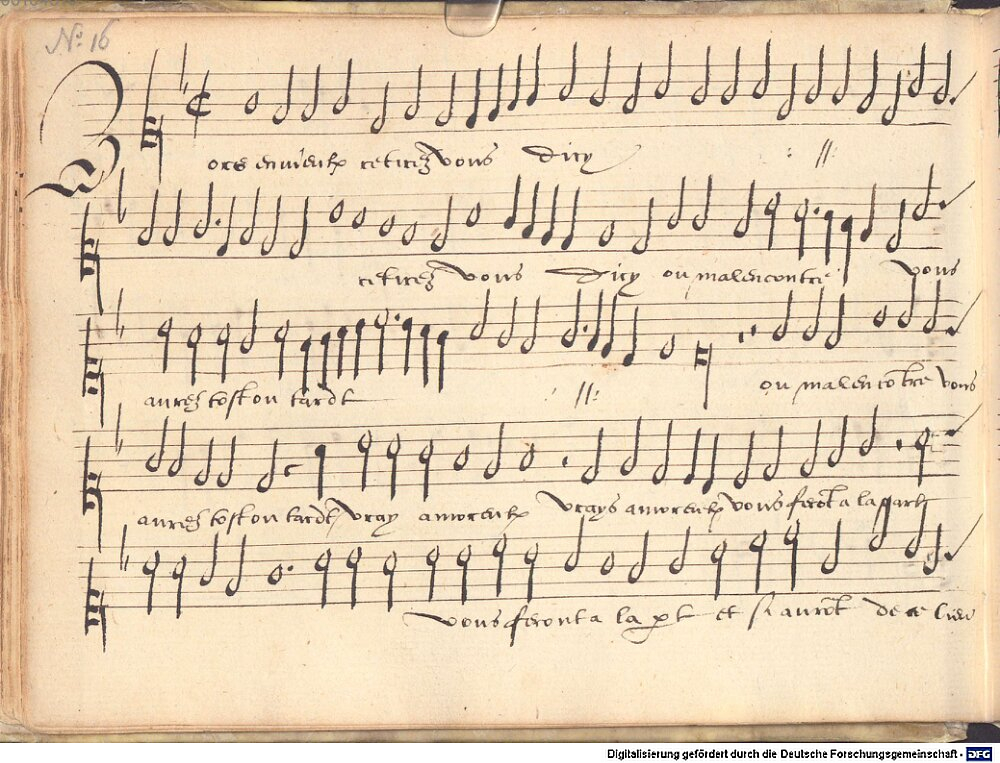 No: 16
Fors envieulx retirez vous dicy //:
retirez vous dicy ou malencontre vous
aurez tost ou tardt //: ou malencōtre vous
aurez tost ou tardt vray amoreulx vrays amoreulx vousferōt a la part
vous feront a la et si aurōt de ce lieu
Digitalisierung gefördert durch die Deutsche Forschungsgemeinschaft - DFG